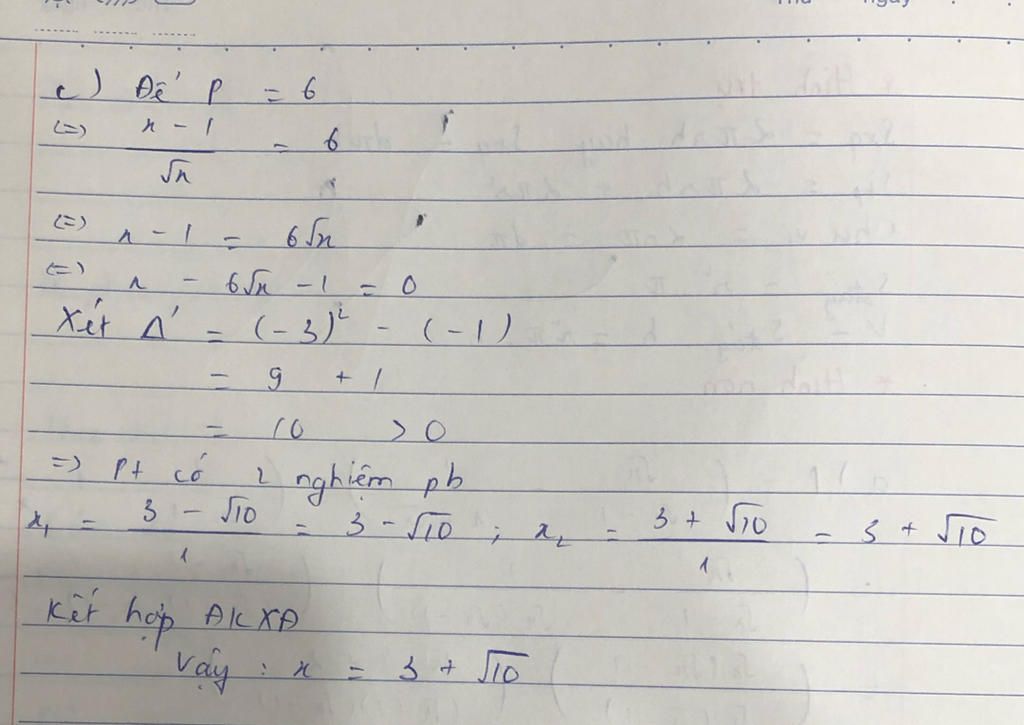 Thứ ngày
c) Để P = 6
(=) x - 1 / √x = 6
(=) x - 1 = 6√x
(=) x - 6√x - 1 = 0
Xét Δ' = (-3)² - (-1)
= 9 + 1
= 10 > 0
=> Pt có 2 nghiệm pb
x₁ = 3 - √10 / 1 = 3 - √10 ; x₂ = 3 + √10 / 1 = 3 + √10
Kết hợp ĐKXĐ
Vậy : x = 3 + √10